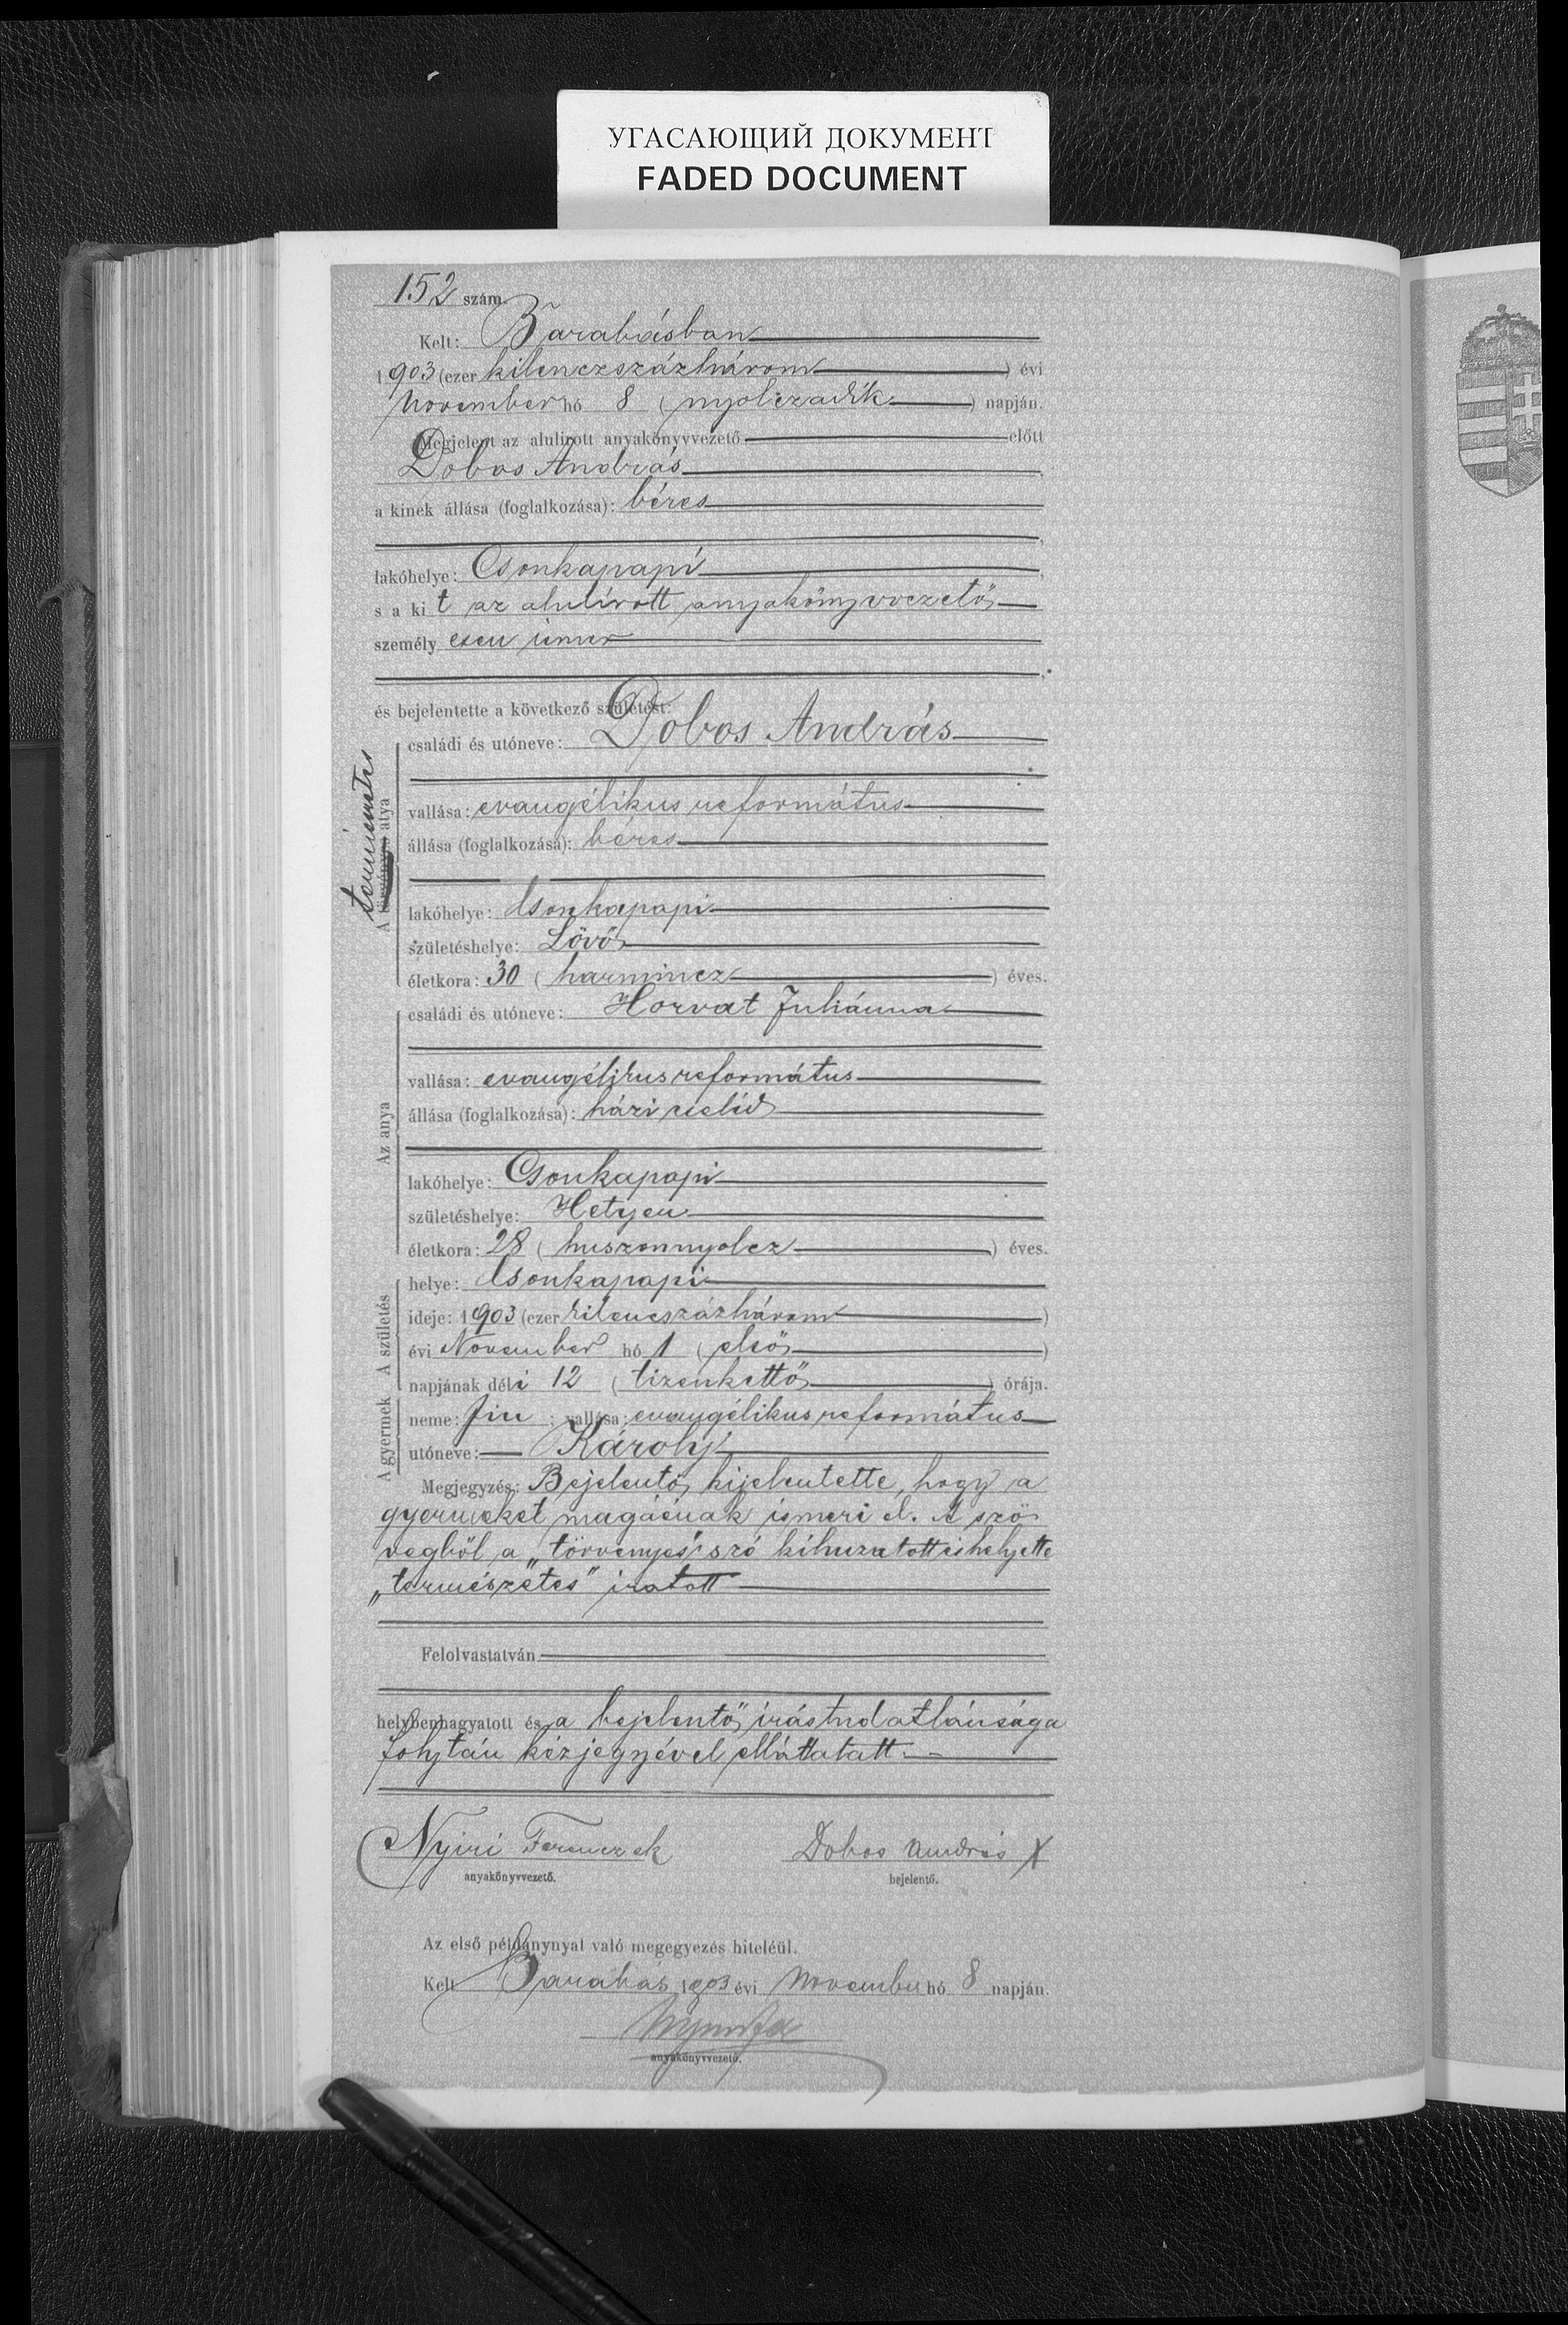 УГАСАЮЩИЙ ДОКУМЕНТ
FADED DOCUMENT
152 szám.
Kelt: Barabásban
1903 (ezer kilenczszázhárom) évi
November hó 8 (nyolczadik) napján.
Megjelent az alulirott anyakönyvvezető előtt
Dobos András,
a kinek állása (foglalkozása): béres
lakóhelye: Csonkapapi,
s a kit az alulírott anyakönyvvezető
személyesen ismer
és bejelentette a következő születést:
A törvényes atya
természetes
családi és utóneve: Dobos András
vallása: evangélikus református
állása (foglalkozása): béres
lakóhelye: Csonkapapi
születéshelye: Lövő
életkora: 30 (harmincz) éves.
Az anya
családi és utóneve: Horvat Juliánna
vallása: evangélikus református
állása (foglalkozása): házi cseléd
lakóhelye: Csonkapapi
születéshelye: Hetyen
életkora: 28 (huszonnyolcz) éves.
A születés
helye: Csonkapapi
ideje: 1903 (ezer kilencszázhárom)
évi November hó 1 (első)
napjának déli 12 (tizenkettő) órája.
A gyermek
neme: fiu; vallása: evangélikus református
utóneve: Károly
Megjegyzés: Bejelentő kijelentette, hogy a
gyermeket magáénak ismeri el. A szö
vegből a „törvenyes" szó kihuzatott és helyette
„természetes" iratott
Felolvastatván
helybenhagyatott és a bejelentő irástudatlansága
folytán kézjegyével elláttatott.
Nyiri Ferencz ek Dobos András X
anyakönyvvezető. bejelentő.
Az első példánynyal való megegyezés hiteléül.
Kelt Barabás 1903 évi November hó 8 napján.
anyakönyvvezető.